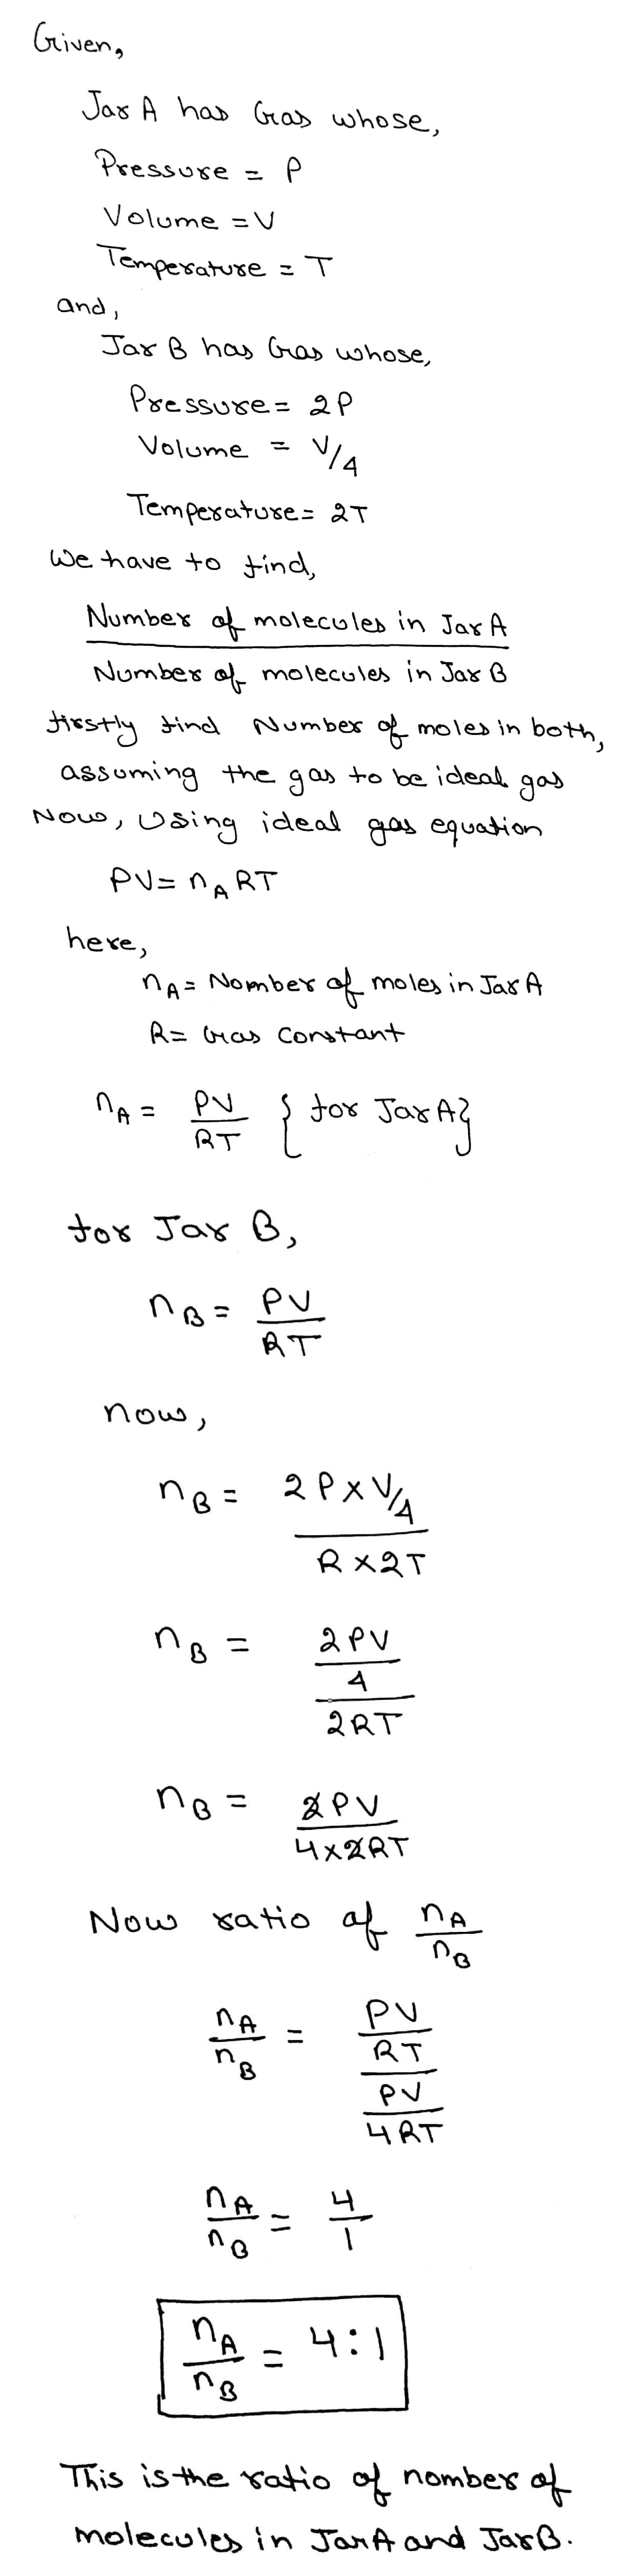 Given,
Jar A has Gas whose,
Pressure = P
Volume = V
Temperature = T
and,
Jar B has Gas whose,
Pressure = 2P
Volume = V/4
Temperature = 2T
We have to find,
Number of molecules in Jar A
Number of molecules in Jar B
firstly find Number of moles in both,
assuming the gas to be ideal gas
Now, Using ideal gas equation
PV = nA RT
here,
nA = Nomber of moles in Jar A
R = Gas Constant
nA = PV/RT { for Jar A}
for Jar B,
nB = PV/RT
now,
nB = 2P × V/4
R × 2T
nB = 2PV
4
2RT
nB = 2PV
4×2RT
Now ratio of nA/nB
nA/nB = PV
RT
PV
4RT
nA/nB = 4/1
nA/nB = 4:1
This is the ratio of nomber of
molecules in Jar A and Jar B.